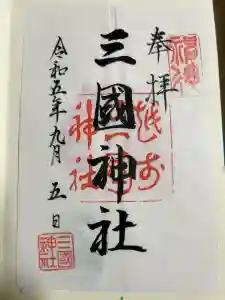 奉拝
越前
神社
三國神社
令和五年九月五日
三國
神社